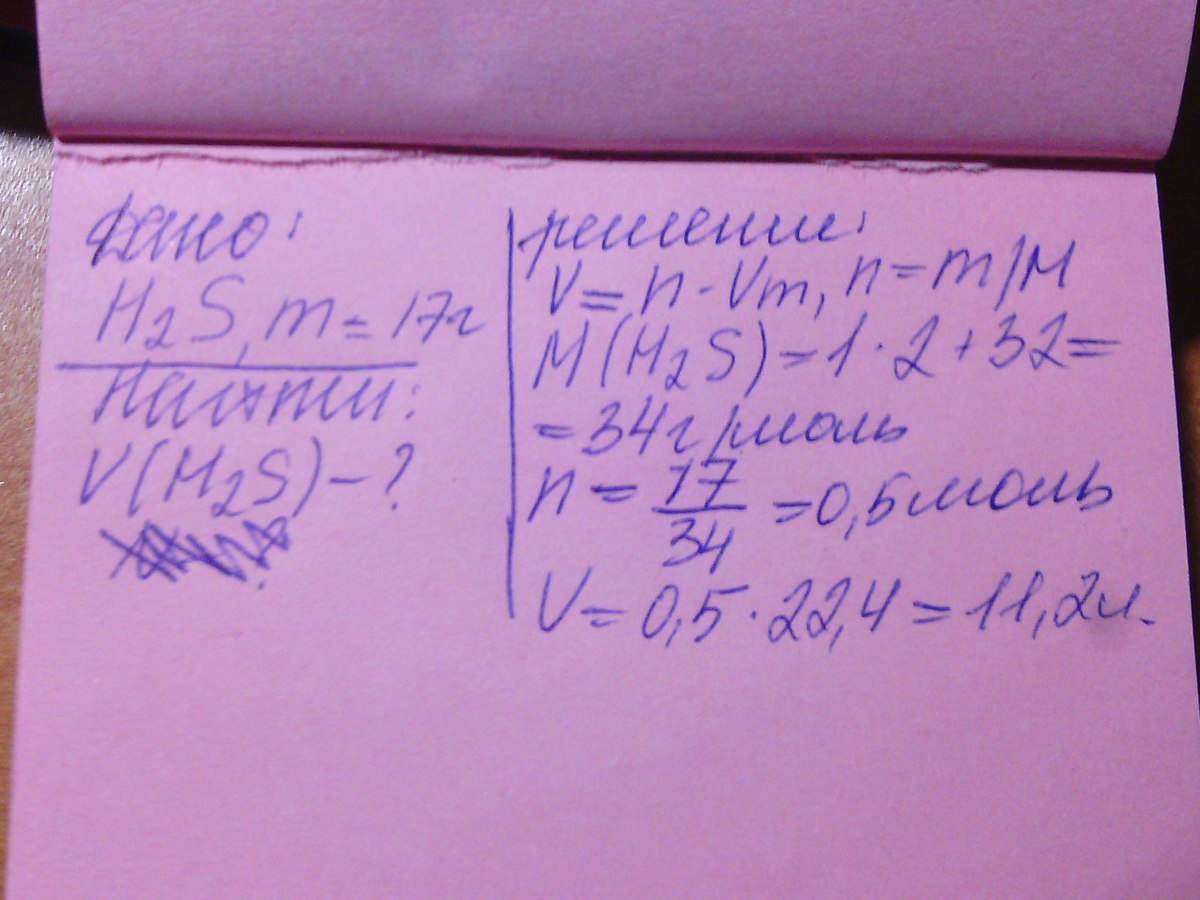 Дано:
H₂S, m = 17г
Найти:
V(H₂S) - ?
решение:
V = n · Vm, n = m/M
M(H₂S) = 1 · 2 + 32 =
= 34г/моль
n = 17/34 = 0,5моль
V = 0,5 · 22,4 = 11,2л.